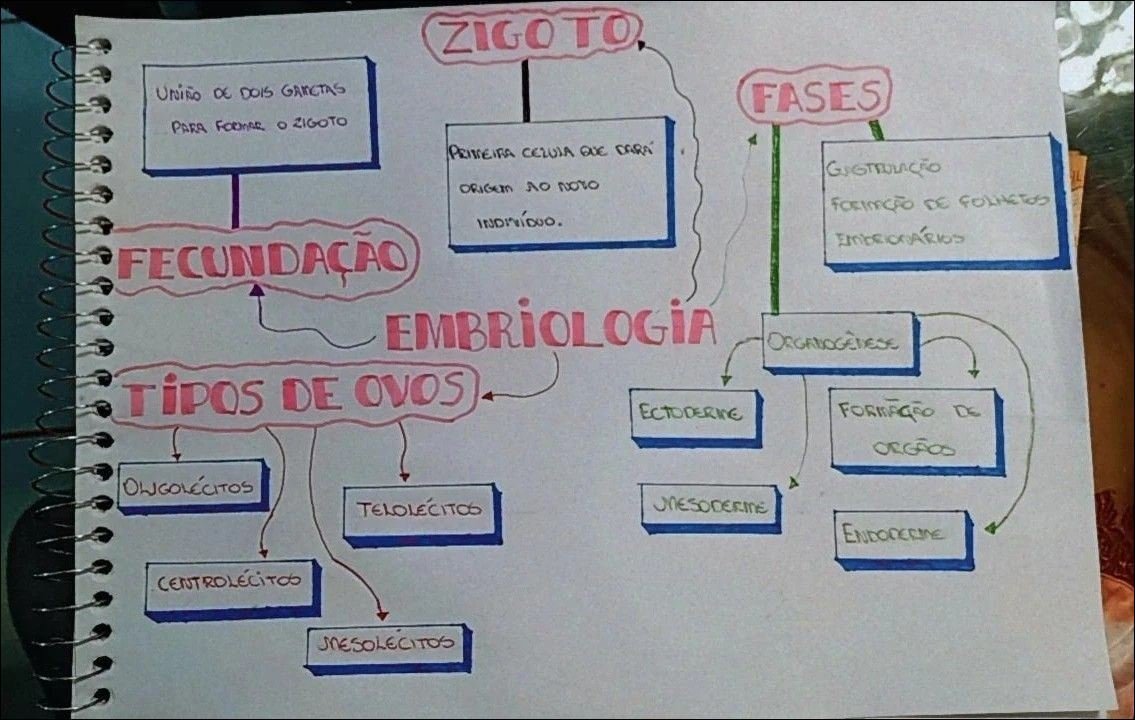 ZIGOTO
UNIÃO DE DOIS GAMETAS
PARA FORMAR O ZIGOTO
FASES
PRIMEIRA CELULA QUE DARÁ
ORIGEM AO NOVO
INDIVÍDUO.
GASTRULAÇÃO
FORMAÇÃO DE FOLHETOS
EMBRIONÁRIOS
FECUNDAÇÃO
EMBRIOLOGIA
ORGANOGÊNESE
TIPOS DE OVOS
ECTODERME
FORMAÇÃO DE
ORGÃOS
OLIGOLÉCITOS
TELOLÉCITOS
MESODERME
ENDODERME
CENTROLÉCITOS
MESOLÉCITOS